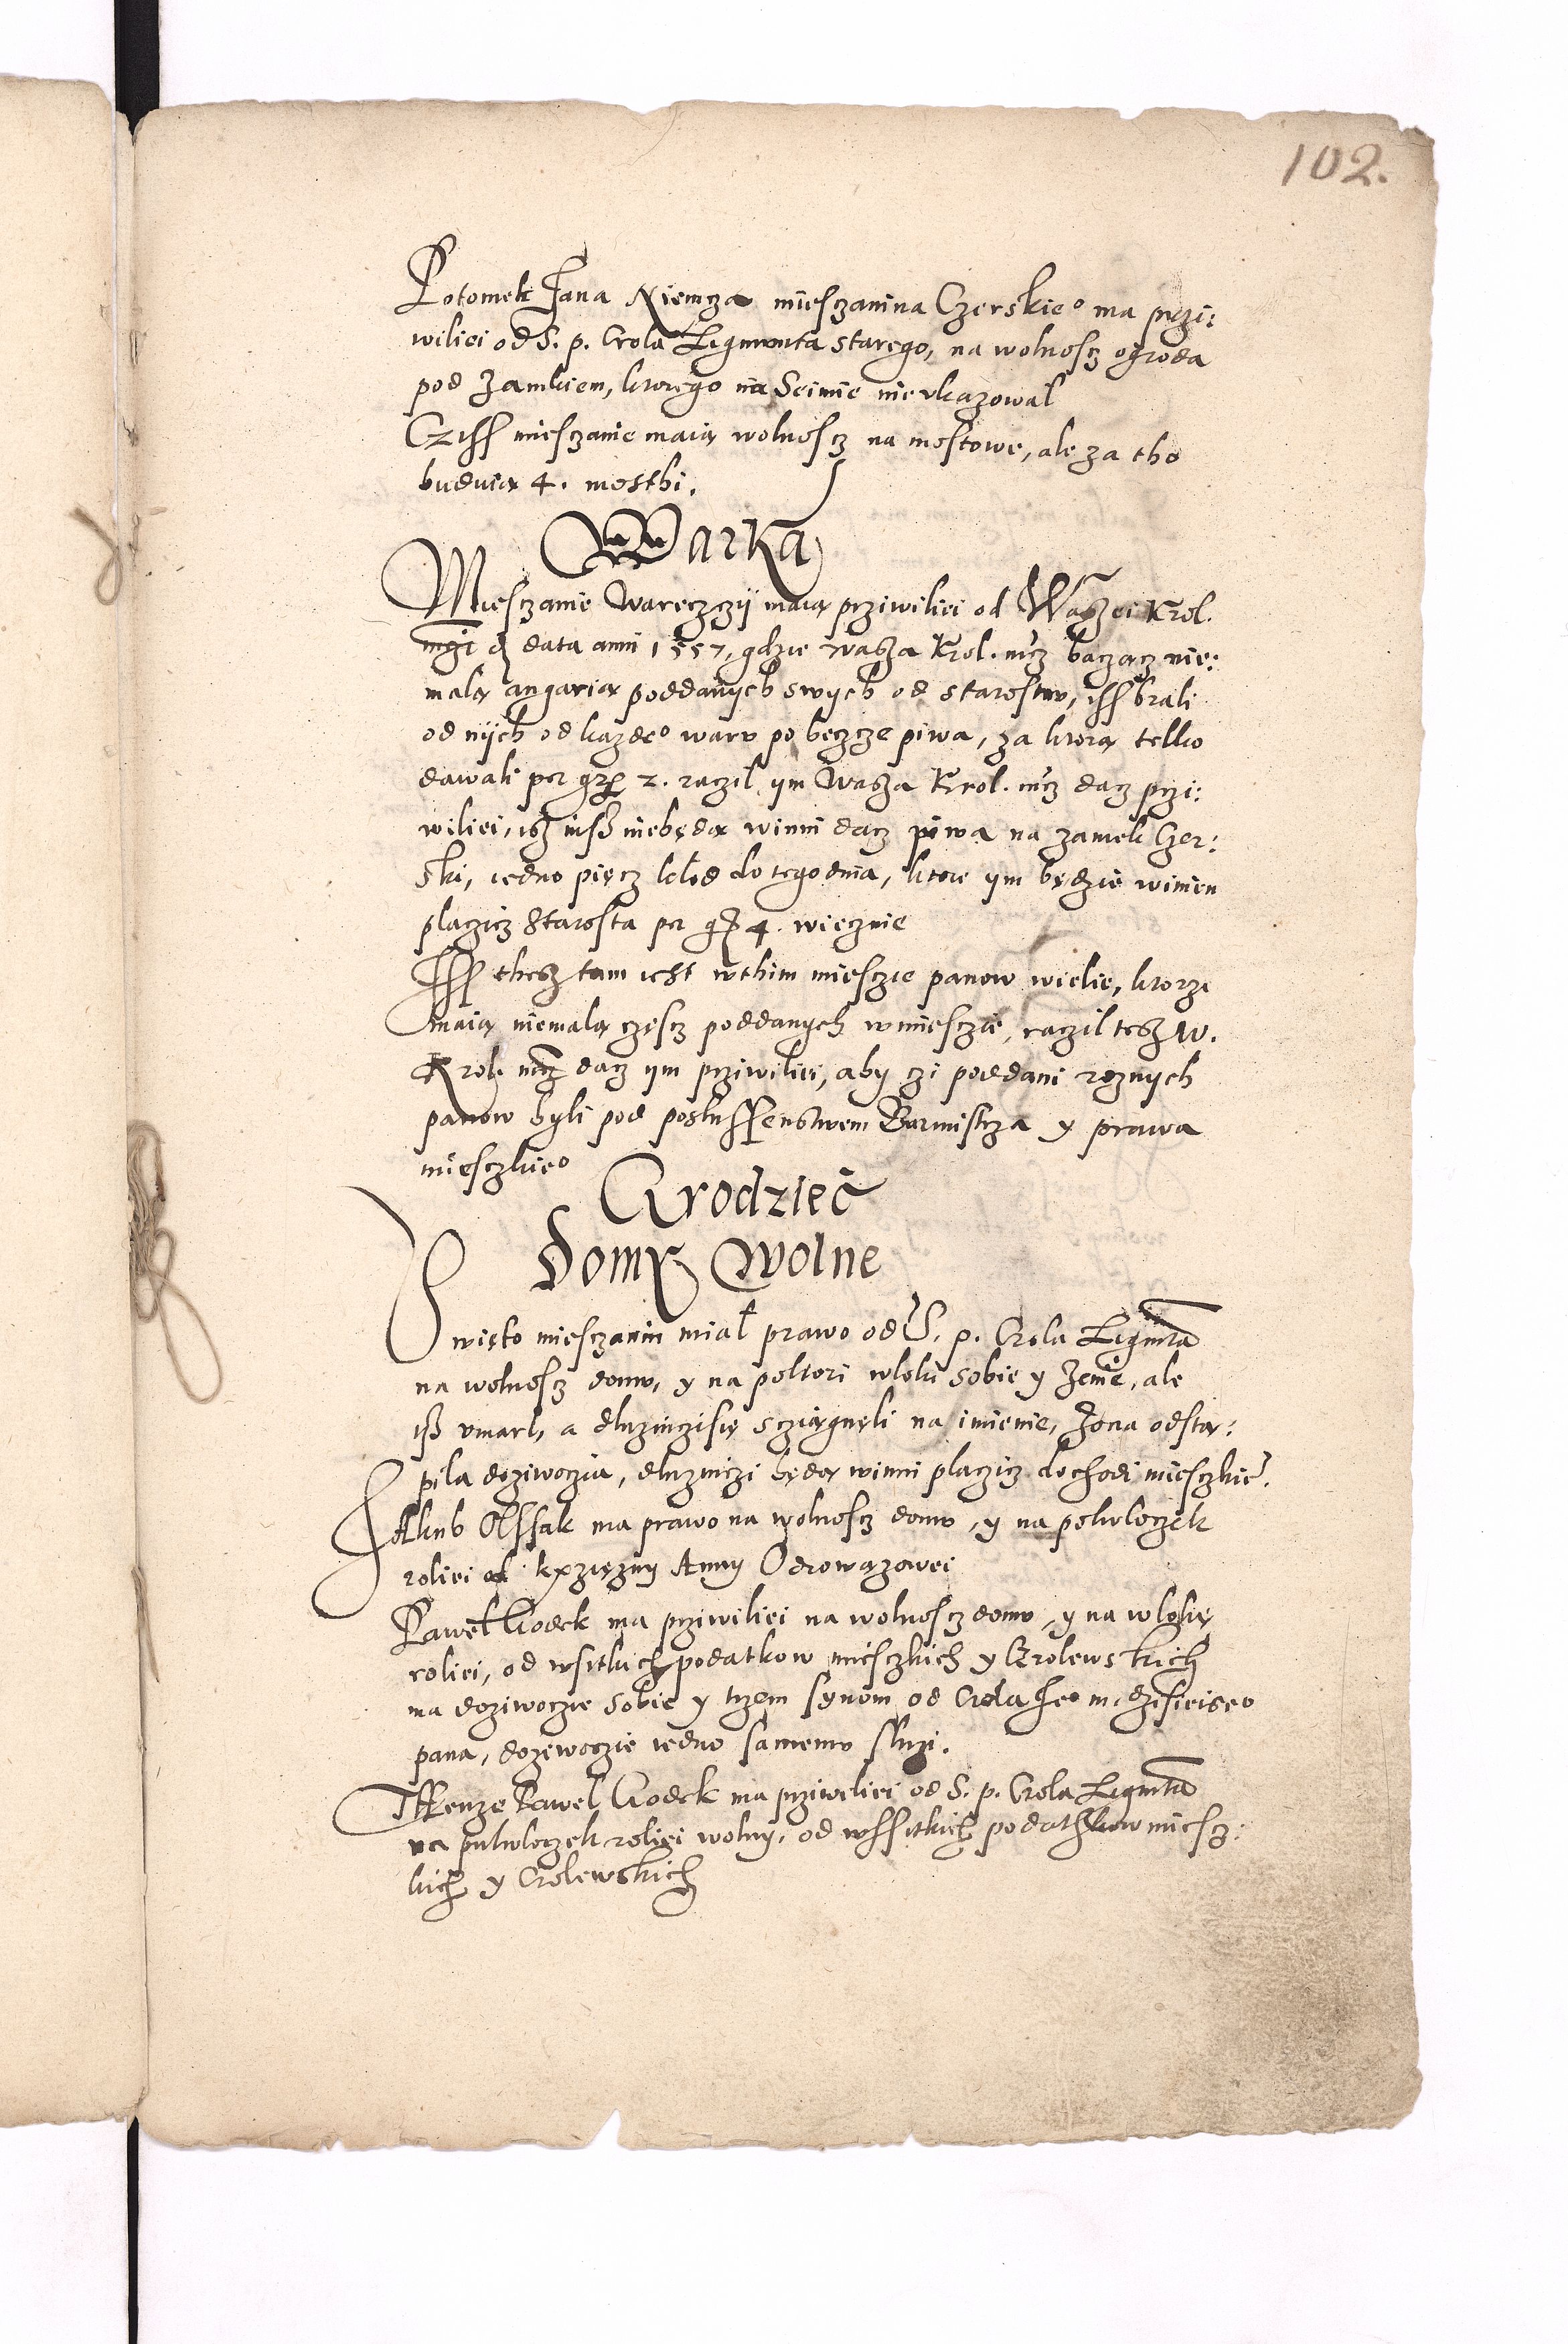 102.
Potomek Jana Niemcza miesczanina Czerskie° ma przi:
wiliei od S. p. Crola Zigmunta starego, na wolnoscz ogroda
pod Zamkiem, ktorego na Seimie nie vkazowal
Cziss miesczanie maią wolnoscz na mostowe, ale za tho
buduią 4. mostki.
Warka
Miesczanie Wareczczÿ maią prziwiliei od Waszei Krol.
data anni 1557, gdzie wasza Krol. mcz baczącz nie:
malą angarią poddanych swych od starostw, iss brali
od nÿch od kazde° waru po beczcze piwa, za ktorą telko
dawali per 2. raczil ym Wasza Krol. mcz dacz przi:
wiliei, isz insz niebędą winni dacz piwa na zamek Czer:
ski, iedno pięcz klod do tego dnia, ktore ym będzie winien
placzicz Starosta per 4. wiecznie
Iss thesz tam iest wthim miesczie panow wielie, ktorzi
maią niemalą częscz poddanych wmiesczie, raczil tesz W.
Krol. mcz dacz ym prziwiliei, aby czi poddani roznych
panow byli pod poslussenstwem Burmistrza y prawa
miesczkie°
Grodziec
Domy Wolne
Swięto miesczanin mial prawo od S. p. Crola Zigmta
na wolnoscz domu, y na poltori wloki sobie y Zenie, ale
isz vmarl, a dluzniczisię sczięgnęli na imienie, Zona odstą:
pila doziwoczia, dluzniczi będą winni placzicz dochodi miesczkie.
Jakub Ossak ma prawo na wolnoscz domu, y na polwloczek
roliei od kxzięzny Anny Odrowązowei
Pawel Godek ma prziwiliei na wolnoscz domu, y na wlokę
roliei, od wsitkich podatkow miesczkich y Crolewskich
ma doziwoczie sobie y trzem synom od Crola Je° m. dzisieise°
pana, dozewoczie iedno samemu sluzi.
Tenze Pawel Godek ma prziwiliei od S. p. Crola Zigmta
na pulwloczek roliei wolny, od wssitkich podathkow miescz:
kich y Crolewskich